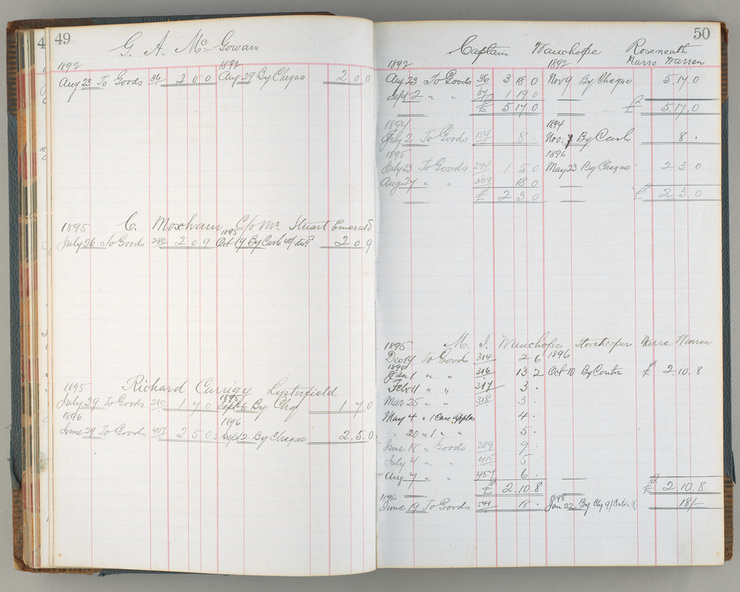 49
G. A. Mc Gowan
1892 1892
Aug 23 To Goods 36 2 0 0 Aug 29 By Cheque 2 0 0
1895 C. Moxham, C/o Mr. Stuart Emerald
1895
July 26 To Goods 282 2 0 9 Oct 19 By Cash 2 0 9
1895 Richard Carrigy Lysterfield
1895
July 29 To Goods 280 1 7 0 Sept 6 By Chq 1 7 0
1896 1896
June 29 To Goods 2 5 0 Sept 2 By Cheque 2.5.0
50
Captain Wauchope Roseneath
1892 1892 Narre Warren
Aug 23 To Goods 36 3 18 0 Nov 9 By Cheque 5.17.0
Sept 2 " " 37 1 19 0
£ 5 17 0 £ 5.17.0
1894 1894
July 2 To Goods 154 8 . Nov. 7 By Cash 8 .
1895 1896
July 23 To Goods 274 1 5 0 May 23 By Cheque 2 3 0
Aug 27 " " 309 18 0
£ 2 3 0 £ 2 3 0
1895 M. J. Wauchope Storekeeper Narre Warren
Dec 14 To Goods 314 2 6 1896
1896
Jan 1 " " 316 13 2 Oct 10 By Contra £ 2.10.8
Feb 11 " " 317 3 .
Mar 25 " " 318 3 .
May 4 " 1 Case Apples 4 .
" 20 " 1 " " 5 .
June 18 " Goods 389 9 .
July 4 " " 415 5 .
Aug 7 " " 457 6 .
£ 2.10.8 £ 2.10.8
1896 1898
June 19 To Goods 541 18 . Jan 22 By Chq 9/ Contra 9 18/-